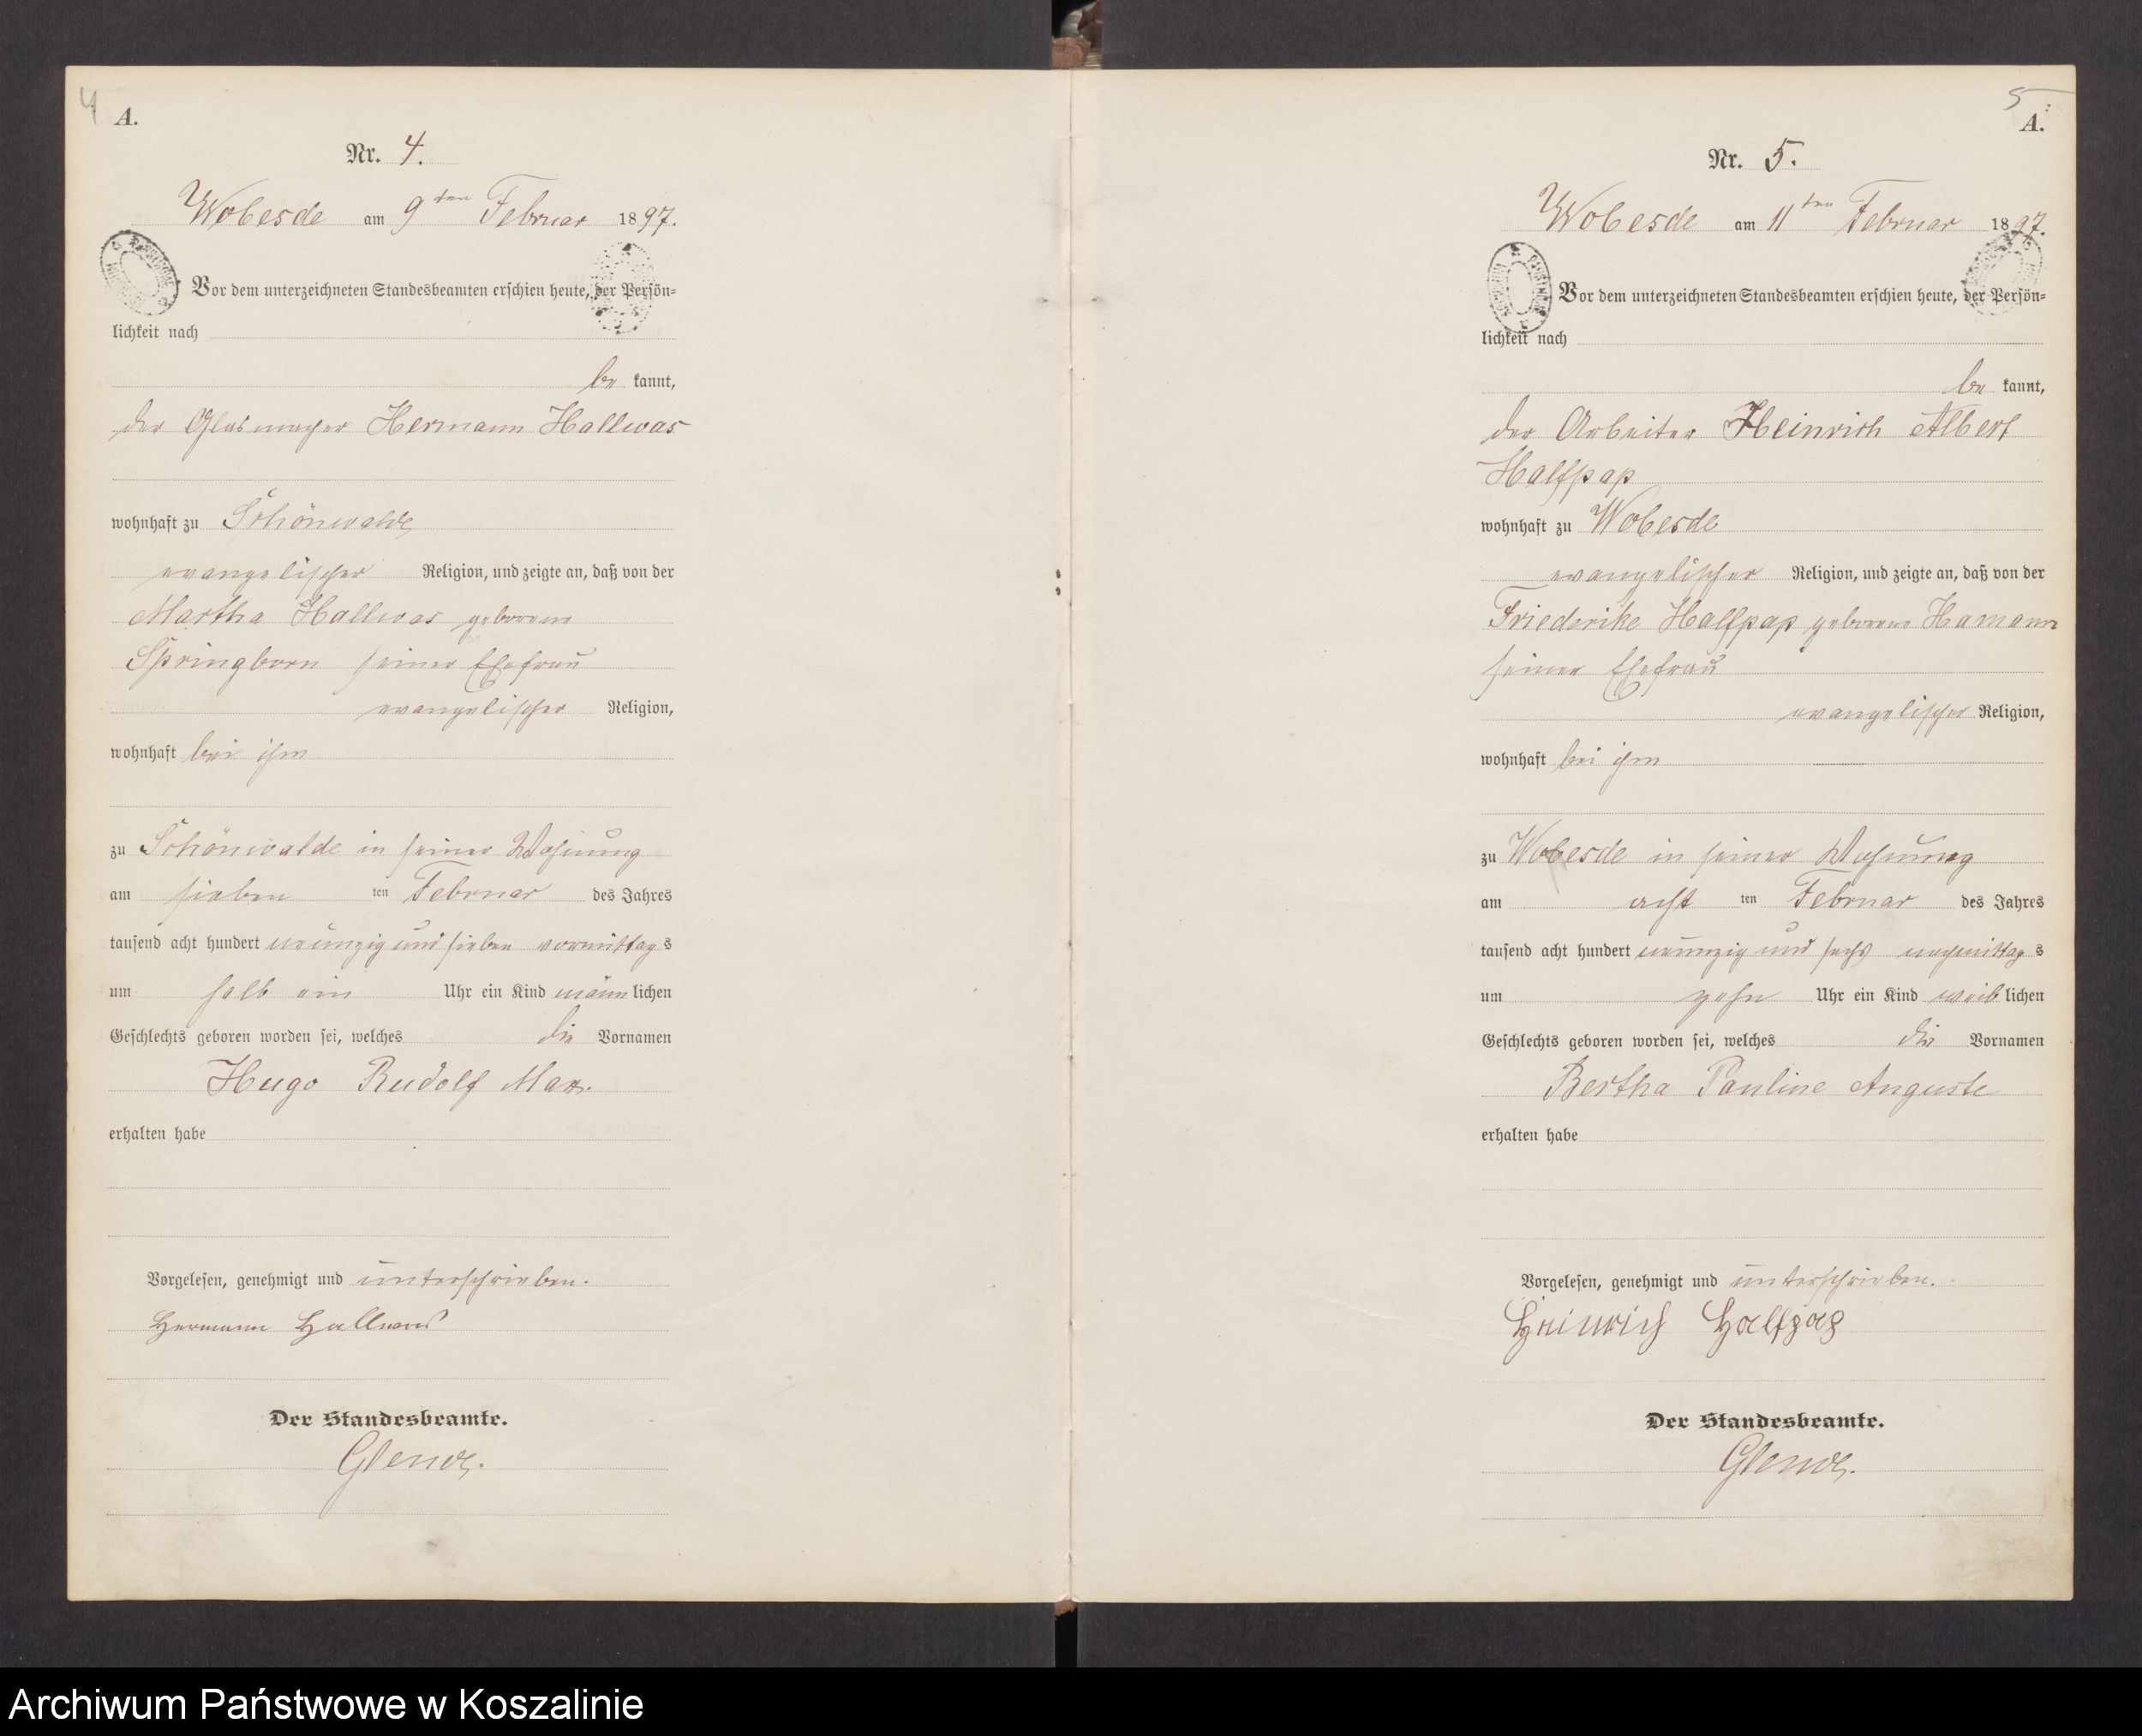 4
A.
Nr. 4.
Wobesde am 9ten Februar 1897.
Vor dem unterzeichneten Standesbeamten erschien heute, der Persön=
lichkeit nach
be kannt,
der Glasmacher Hermann Hallwas
wohnhaft zu Schönwalde
evangelischer Religion, und zeigte an, daß von der
Martha Hallwas geborene
Springborn seiner Ehefrau
evangelischer Religion,
wohnhaft bei ihm
zu Schönwalde in seiner Wohnung
am sieben ten Februar des Jahres
tausend acht hundert neunzig und sieben vormittag s
um halb ein Uhr ein Kind männ lichen
Geschlechts geboren worden sei, welches die Vornamen
Hugo Rudolf Max.
erhalten habe
Vorgelesen, genehmigt und unterschrieben.
Hermann Hallwas
Der Standesbeamte.
5
A.
Nr. 5.
Wobesde am 11ten Februar 1897.
Vor dem unterzeichneten Standesbeamten erschien heute, der Persön=
lichkeit nach
be kannt,
der Arbeiter Heinrich Albert
Halfpap
wohnhaft zu Wobesde
evangelischer Religion, und zeigte an, daß von der
Friederike Halfpap geborene Hamann
seiner Ehefrau
evangelischer Religion,
wohnhaft bei ihm
zu Wobesde in seiner Wohnung
am acht ten Februar des Jahres
tausend acht hundert neunzig und sechs nachmittag s
um zehn Uhr ein Kind weib lichen
Geschlechts geboren worden sei, welches die Vornamen
Bertha Pauline Auguste
erhalten habe
Vorgelesen, genehmigt und unterschrieben.
Heinrich Halfpap
Der Standesbeamte.
Archiwum Państwowe w Koszalinie